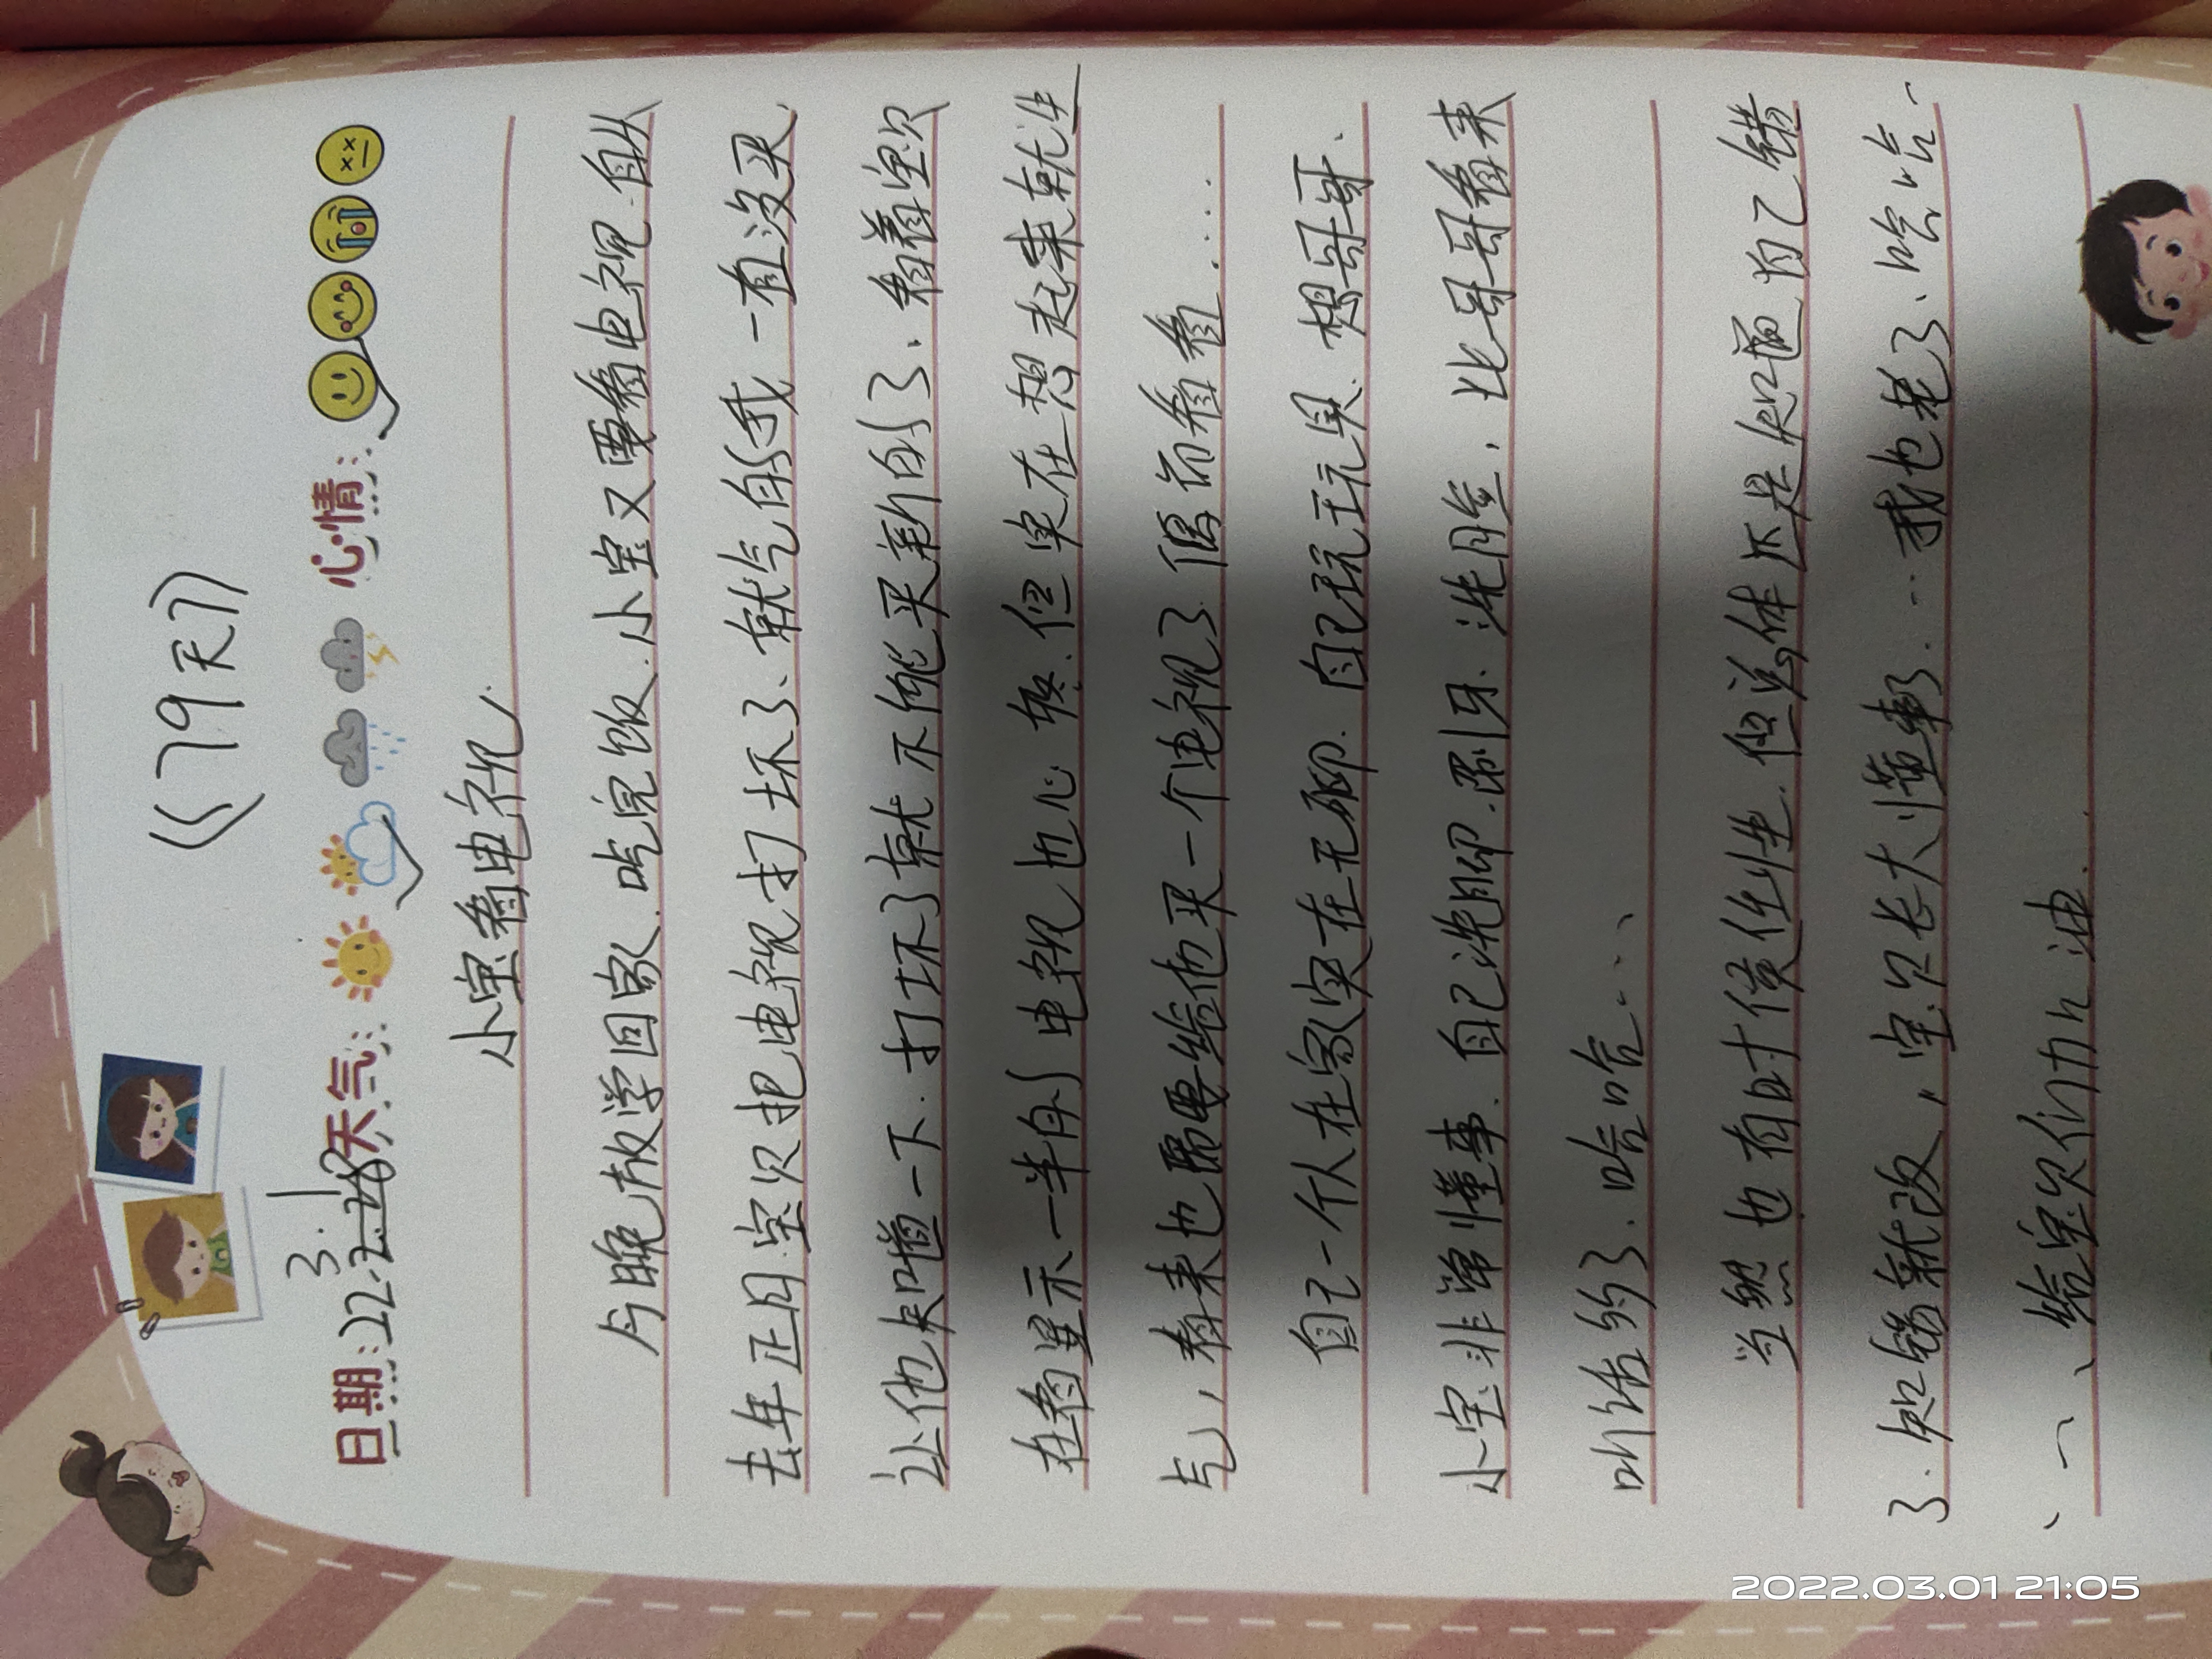 《79天》
日期:22.3.1 天气: 心情:
小宝看电视.
今晚放学回家.吃完饭.小宝又要看电视.自从
去年正月宝贝把电视打坏了、就气的我一直没买.
让他知道一下.打坏了就不能买新的了、看着宝贝
在看显示一半的电视也心疼.但实在想起来就生
气,看来也需要给他买一个电视了偶尔看看....
自己一个人在家实在无聊.自己玩玩具.想哥哥.
小宝非常懂事.自己洗脚.刷牙.洗脸,比哥哥看来
听话多了.哈哈...、
当然也有时候任性.但总体还是知道自己错
了.知错就改,宝贝长大懂事了...我也老了、哈哈、
、一、给宝贝们加油.
2022.03.01 21:05